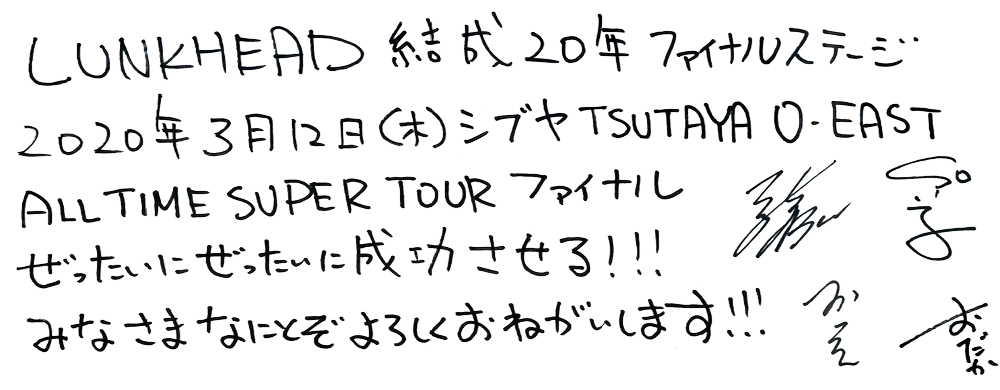 LUNKHEAD 結成20年 ファイナルステージ
2020年3月12日(木)シブヤTSUTAYA O-EAST
ALL TIME SUPER TOUR ファイナル
ぜったいにぜったいに成功させる!!!
みなさまなにとぞよろしくおねがいします!!!
おだか